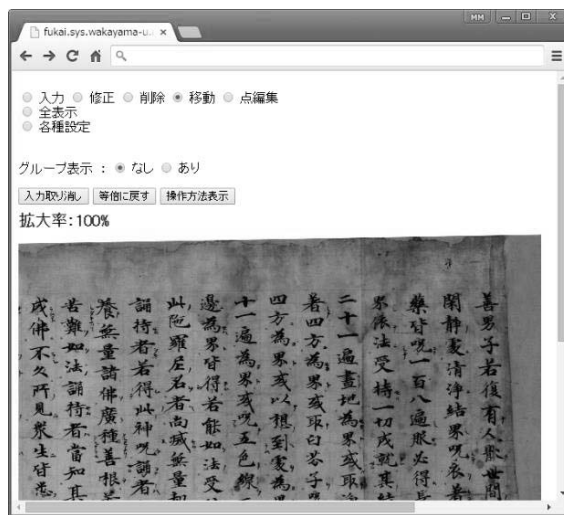 MM
fukai.sys.wakayama-u.
入力 修正 削除 移動 点編集
全表示
各種設定
グループ表示 : なし あり
入力取り消し 等倍に戻す 操作方法表示
拡大率:100%
善男子若復有人厭世間
閑静處清浄結界呪衣著
藥皆呪一百八遍服必得長
界依法受持一切成就其結
二十一遍畫地為界或取浄
著四方為界或取白芥子呪
四方為界或以想到處為界
十一遍為界或呪五色線二
邊為界皆得若能如法受持
此陀羅尼名者尚滅無量劫
誦持者若得此神呪誦者
養無量諸佛廣種善根若
苦難如法誦持者當知其
成佛不久所見衆生皆悉